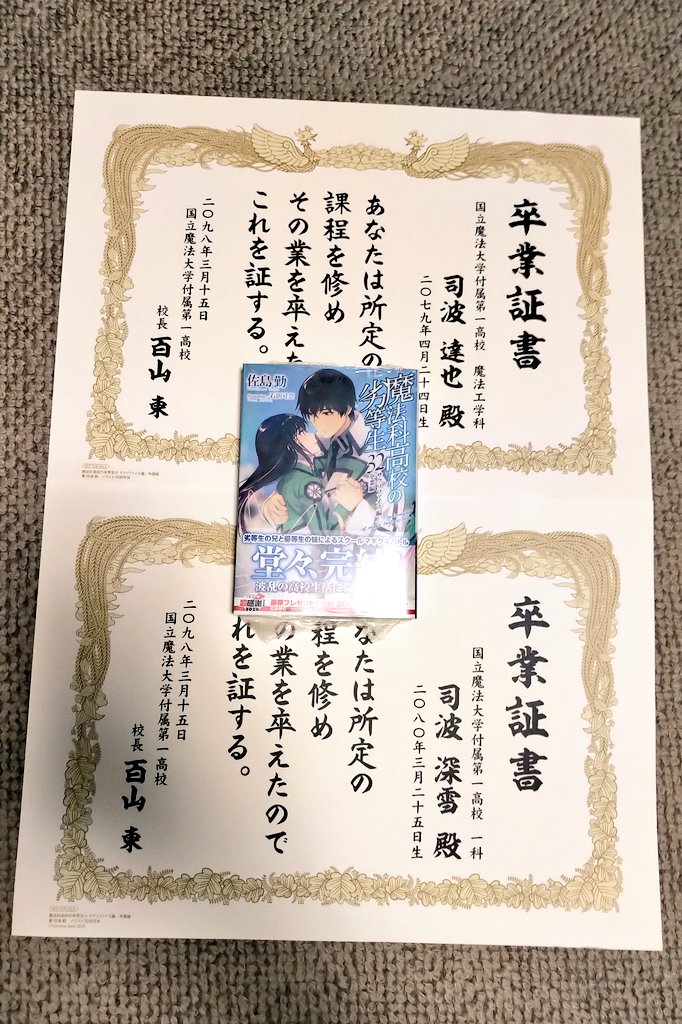 卒業証書
国立魔法大学付属第一高校 魔法工学科
司波 達也 殿
二〇七九年四月二十四日生
あなたは所定の
課程を修め
その業を卒えた
これを証する。
二〇九八年三月十五日
国立魔法大学付属第一高校
校長 百山 東
魔法科高校の
劣等生 32
佐島 勤
石田可奈
劣等生の兄と優等生の妹によるスクールマギクス
堂々、完結
波乱の高校生活
2020
卒業証書
国立魔法大学付属第一高校 一科
司波 深雪 殿
二〇八〇年三月二十五日生
なたは所定の
程を修め
の業を卒えたので
れを証する。
二〇九八年三月十五日
国立魔法大学付属第一高校
校長 百山 東